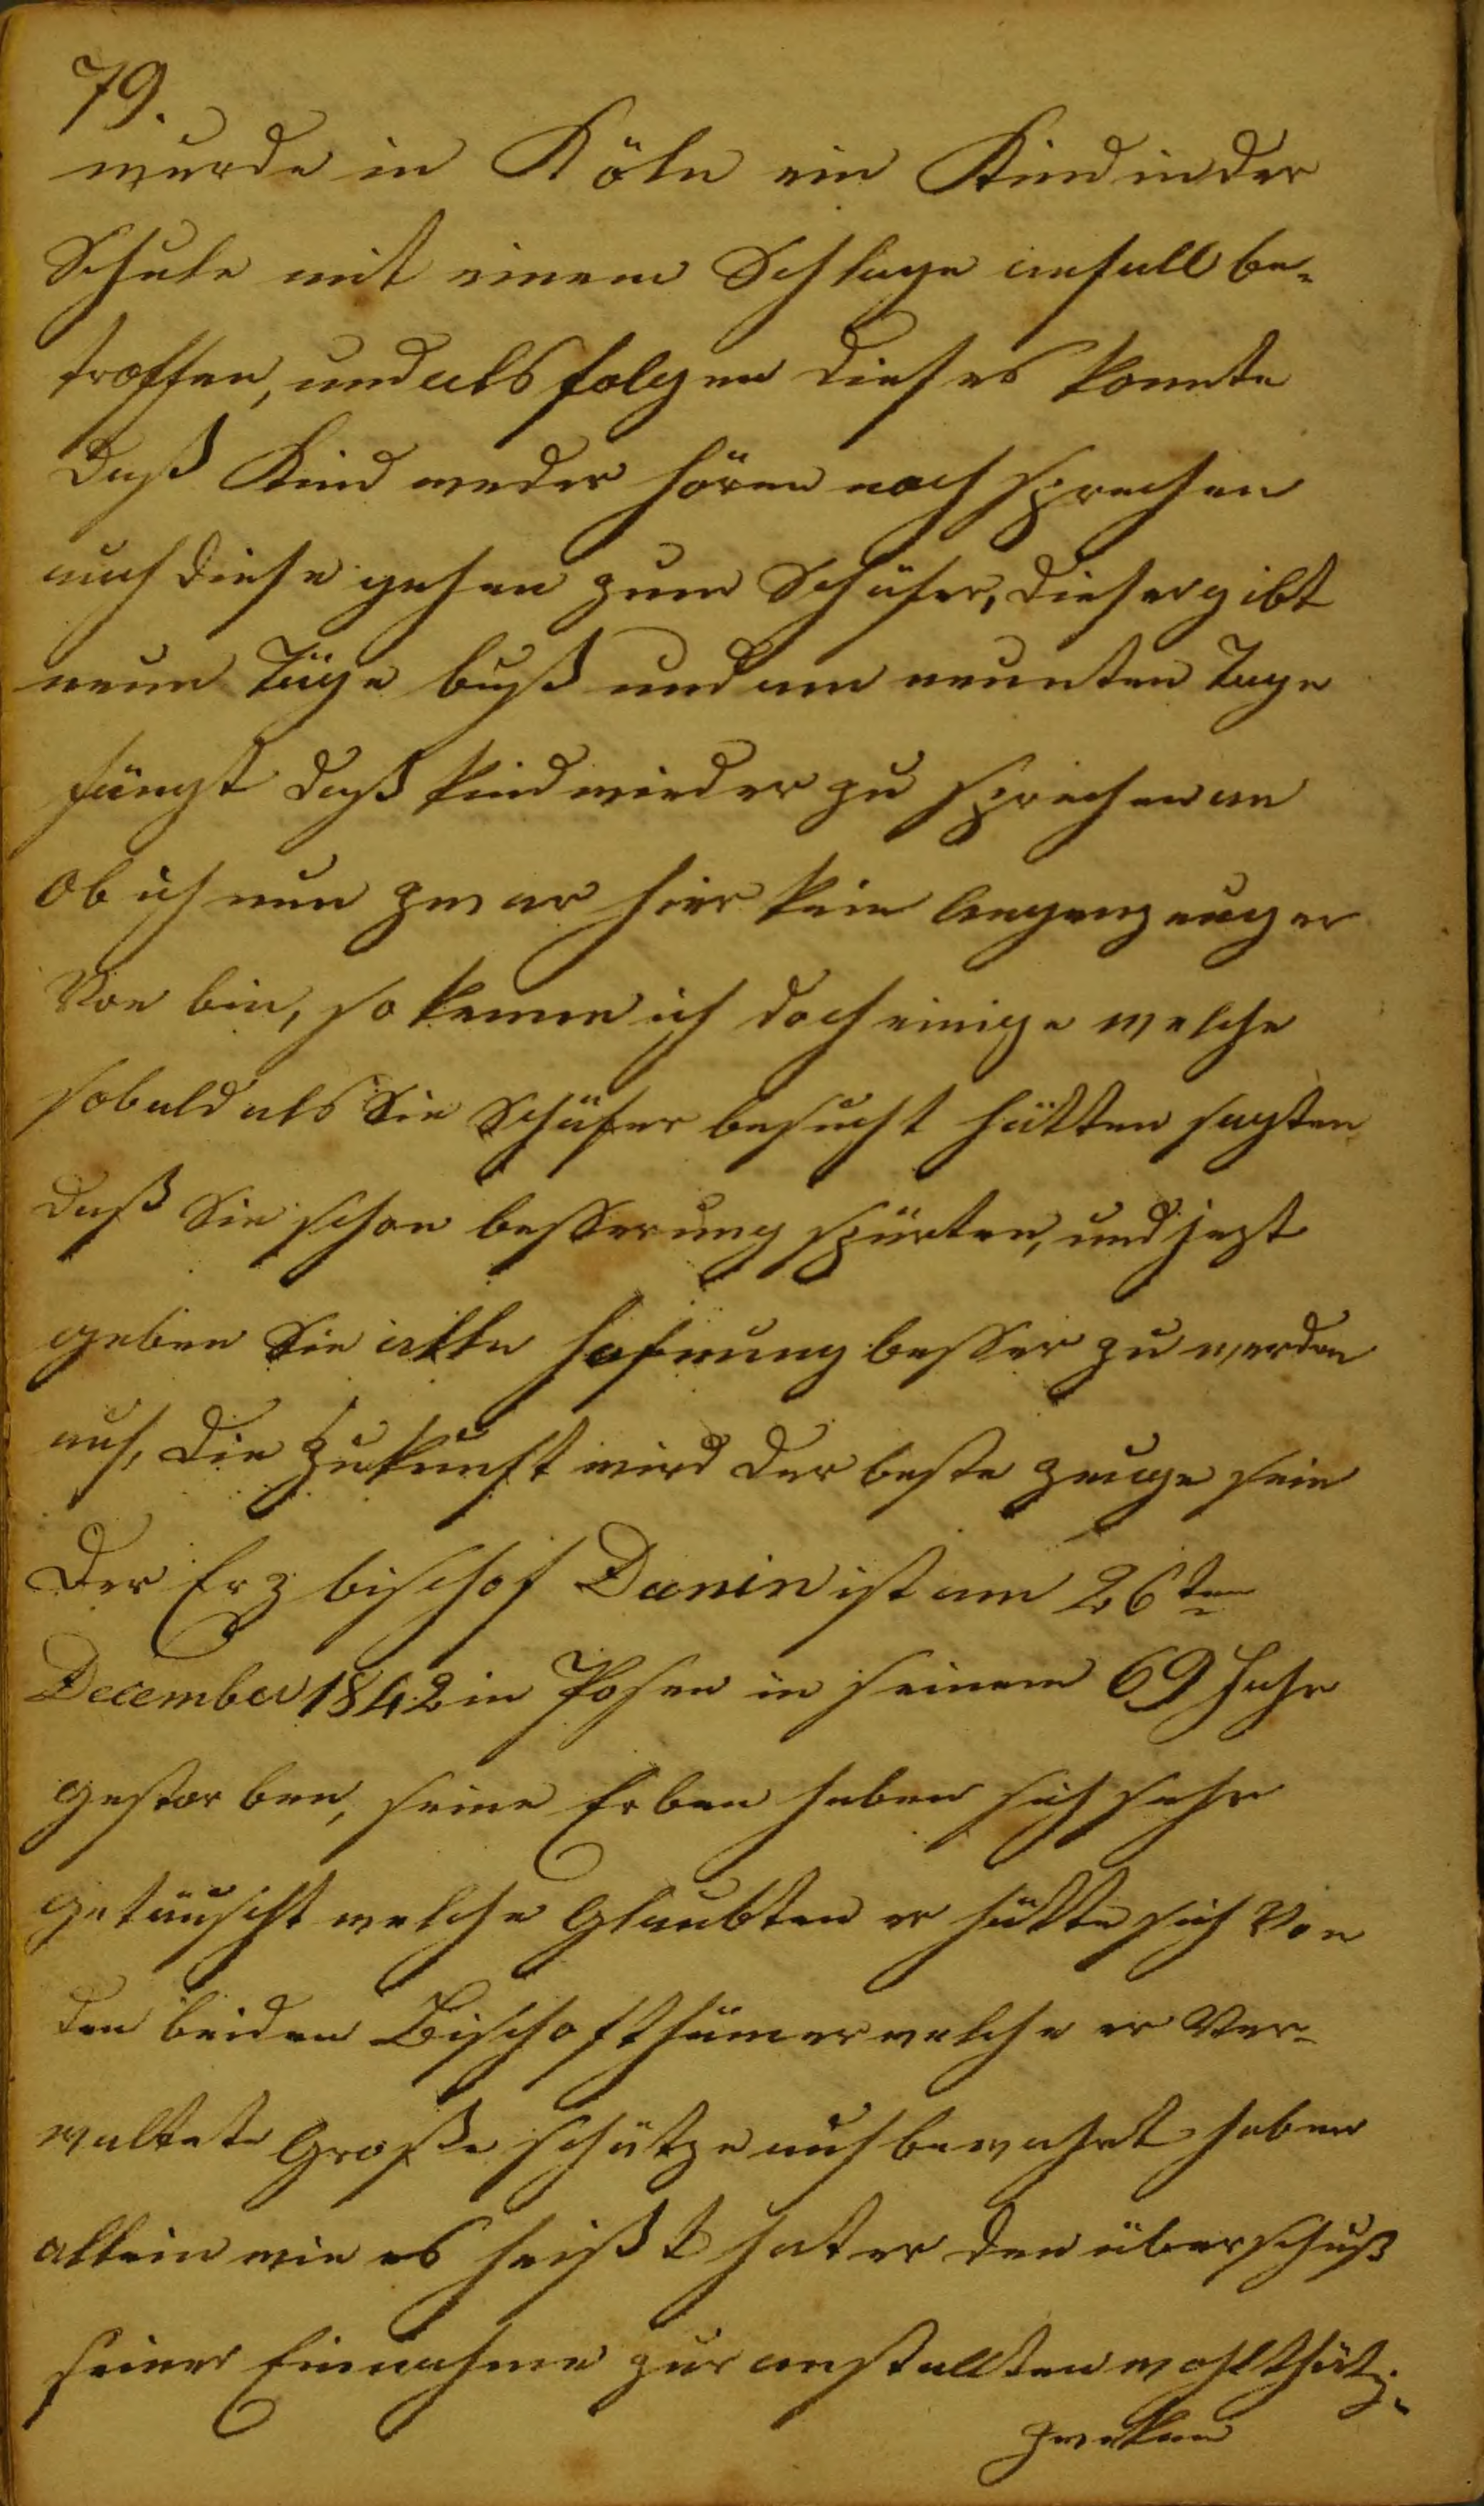 79.
wurde in Köln ein Kind in der
Schule mit einem Schlage anfall be-
troffen, und als folgen dieses konnte
daß Kind weder hören noch sprechen
auch diese gehen zum Schäfer, dieser gibt
neun Täge buß und am neunten Tage
fängt daß kind wieder zu sprechen an
Ob ich nun zwar hier kein Augenzeuger
Von bin, so kenne ich doch einige welche
sobald als Sie Schäfer besucht hätten sagten
daß Sie schon besserung spürten, und jezt
geben Sie alle hofnung besser zu werden
auf, die Zukunft wird der beste zeuge sein
Der Erz bischof Dunin ist am 26ten
December 1842 in Posen in seinem 69 Jahr
gestor ben, seine Erben haben sich sehr
getäuscht welche Glaubten er hätte sich Von
den beiden Bischofthümer welche er Ver-
waltete Große schätze aufbewahrt haben
allein wie es heißt hat er den überschuß
seiner Einnahme zur anstallten wohlthät.
zweken